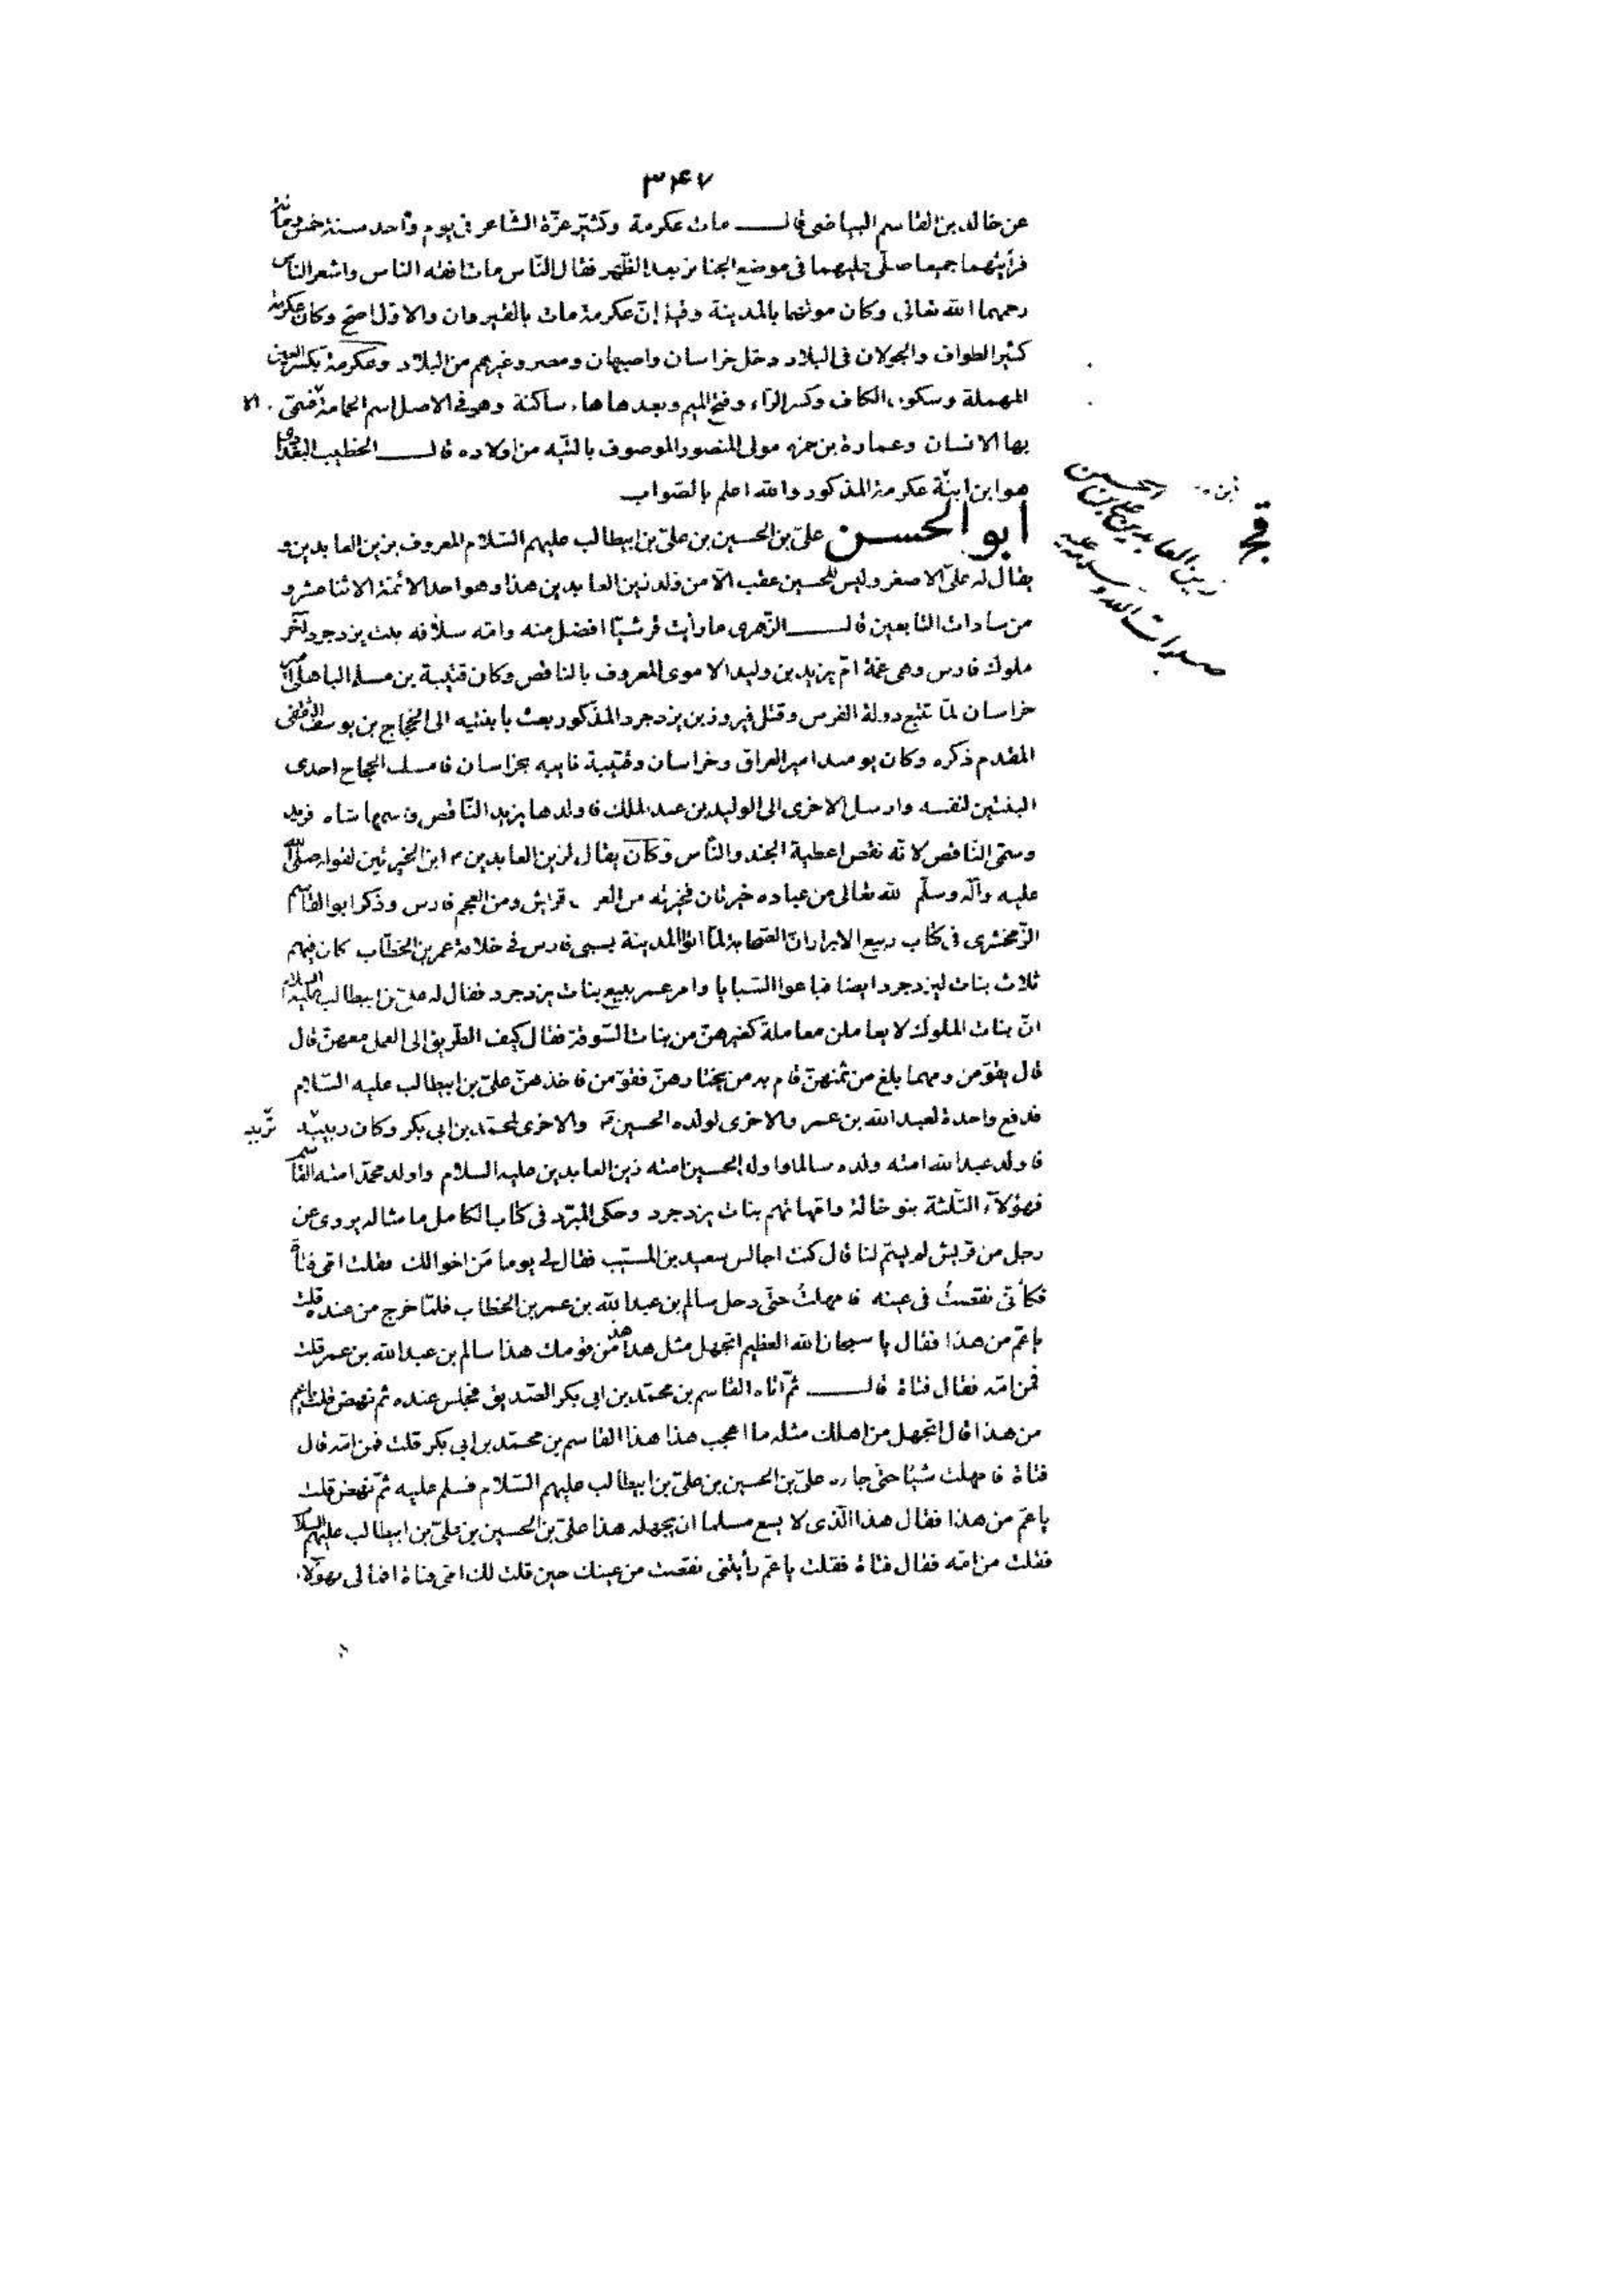 ٣٤٧
عن خالد بن القاسم البياضى قال مات عكرمة وكثيّر عزّة الشّاعر فى يوم واحد سنة خمس ومائة
فرأيتهما جميعا صلّى عليهما فى موضع الجنائز بعد الظّهر فقال النّاس مات افقه الناس واشعر الناس
رحمهما الله تعالى وكان موتهما بالمدينة وقيل إنّ عكرمة مات بالقيروان والاوّل اصحّ وكان عكرمة
كثير الطواف والجولان فى البلاد دخل خراسان واصبهان ومصر وغيرهم من البلاد وعكرمة بكسر العين
المهملة وسكون الكاف وكسر الرّاء وفتح الميم وبعدها هاء ساكنة وهو فى الاصل اسم الحمامة فسمّى الا
بها الانسان وعمارة بن حمزه مولى المنصور الموصوف بالتّيه من اولاده قال الخطيب البغدادى
هو ابن ابنة عكرمة المذكور والله اعلم بالصّواب
أبو الحسن علىّ بن الحسين بن علىّ بن ابيطالب عليهم السّلام المعروف بزين العابدين و
يقال له علىّ الاصغر وليس للحسين عقب الّا من ولد زين العابدين هذا وهو احد الائمّة الاثنا عشر و
من سادات التابعين قال الزّهرى ما رأيت قرشيّا افضل منه وامّه سلافه بنت يزدجرد آخر
ملوك فارس وهى عمّة امّ يزيد بن وليد الاموى المعروف بالناقص وكان قتيبة بن مسلم الباهلى امير
خراسان لمّا تتبع دولة الفرس وقتل فيروز بن يزدجرد المذكور بعث بابنتيه الى الحجّاج بن يوسف الثقفى
المقدم ذكره وكان يومئذ امير العراق وخراسان وقتيبة نايبه بخراسان فامسك الحجاج احدى
البنتين لنفسه وارسل الاخرى الى الوليد بن عبد الملك فاولدها يزيد النّاقص واسمها شاه فريد
وسمّى النّاقص لانّه نقص اعطية الجند والنّاس وكان يقال لزين العابدين ابن الخيرتين لقوله صلّى الله
عليه وآله وسلّم لله تعالى من عباده خيرتان فخيرته من العرب قريش ومن العجم فارس وذكر ابو القاسم
الزّمخشرى فى كتاب ربيع الابرار انّ الصّحابة لمّا اتوا المدينة بسبى فارس فى خلافة عمر بن الخطّاب كان فيهم
ثلاث بنات ليزدجرد ايضا فباعوا السّبايا وامر عمر ببيع بنات يزدجرد فقال له علىّ بن ابيطالب عليه السلام
انّ بنات الملوك لا يعاملن معاملة كغيرهنّ من بنات السّوقة فقال كيف الطّريق الى العمل معهنّ قال
قال يقوّمن ومهما بلغ من ثمنهنّ قام به من يختارهنّ فقوّمن فاخذهنّ علىّ بن ابيطالب عليه السّلام
فدفع واحدة لعبد الله بن عمر والاخرى لولده الحسين والاخرى لمحمّد بن ابى بكر وكان ربيبه
فاولد عبد الله امته ولده سالما واولد الحسين امته زين العابدين عليه السلام واولد محمّد امته القاسم
فهؤلآء الثّلثة بنو خالة وامّهاتهم بنات يزدجرد وحكى المبرّد فى كتاب الكامل ما مثاله يروى عن
رجل من قريش لم يسمّ لنا قال كنت اجالس سعيد بن المسيّب فقال لى يوما مَن اخوالك فقلت امّى فتاة
فكأنّى نقصتُ فى عينه فامهلتُ حتّى دخل سالم بن عبد الله بن عمر بن الخطاب فلمّا خرج من عنده قلت
يا عمّ من هذا فقال يا سبحان الله العظيم اتجهل مثل هذا من قومك هذا سالم بن عبد الله بن عمر قلت
فمن امّه فقال فتاة قال ثمّ اتاه القاسم بن محمّد بن ابى بكر الصّديق فجلس عنده ثم نهض قلت يا عم
من هذا قال اتجهل من اهلك مثله ما اعجب هذا هذا القاسم بن محمّد بن ابى بكر قلت فمن امّه قال
فتاة فامهلت شيئا حتّى جاءه علىّ بن الحسين بن علىّ بن ابيطالب عليهم السّلام فسلم عليه ثمّ نهض قلت
يا عمّ من هذا فقال هذا الّذى لا يسع مسلما ان يجهله هذا علىّ بن الحسين بن علىّ بن ابيطالب عليهم السلام
فقلت من امّه فقال فتاة فقلت يا عمّ رأيتنى نقصت من عينك حين قلت لك امّى فتاة افما لى بهؤلاء
الحسين
زين العابدين على بن
صلوات الله وسلامه عليه